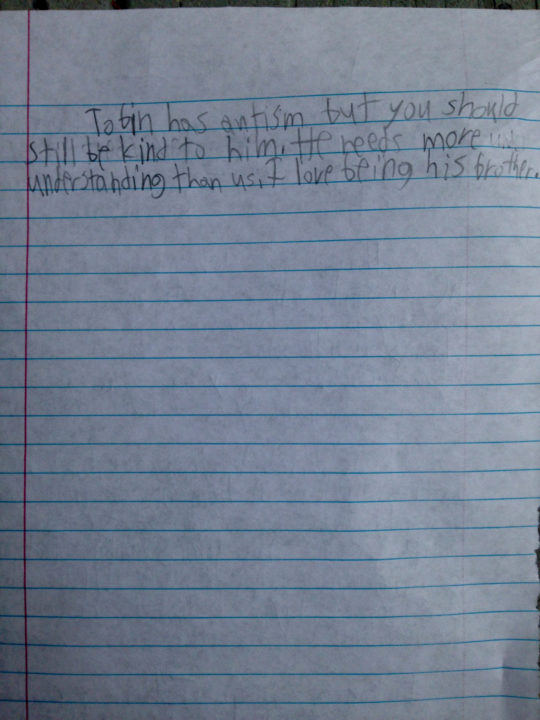 Tobin has autism but you should
still be kind to him. He needs more
understanding than us. I love being his brother.